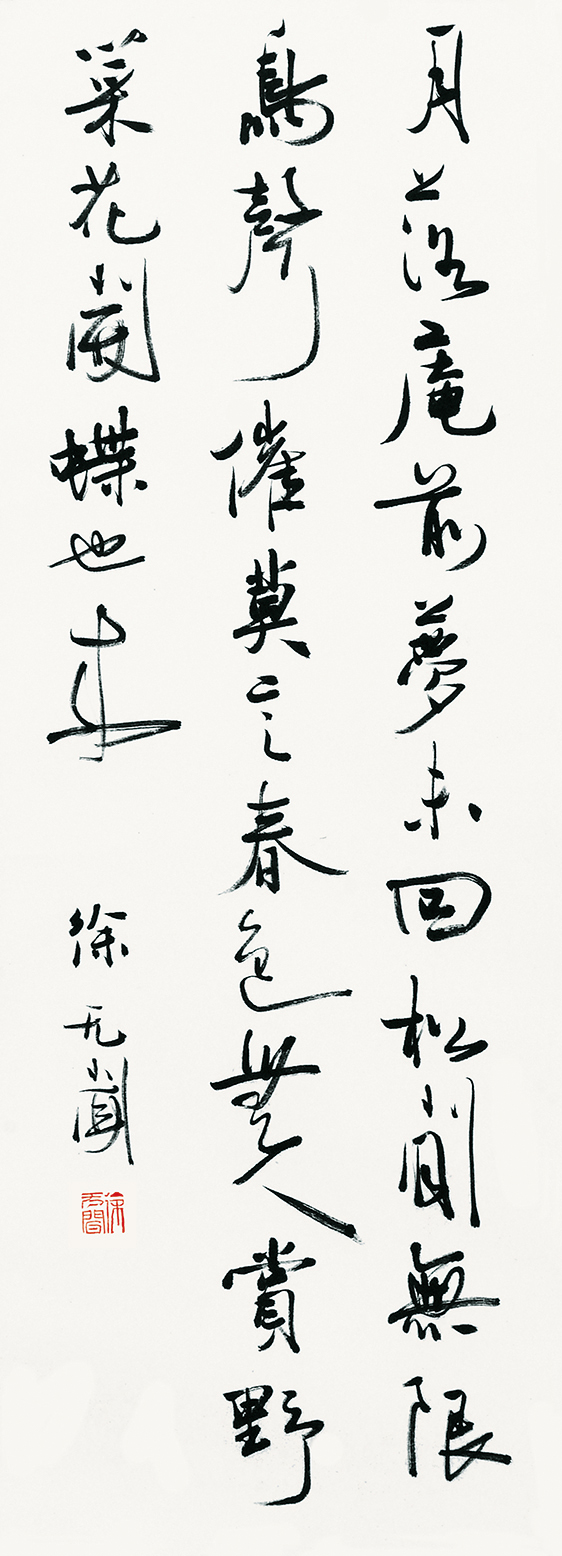 月落庵前夢未回松間無限
鳥聲催莫言春色無人賞野
菜花開蝶也來
徐无聞
徐无聞